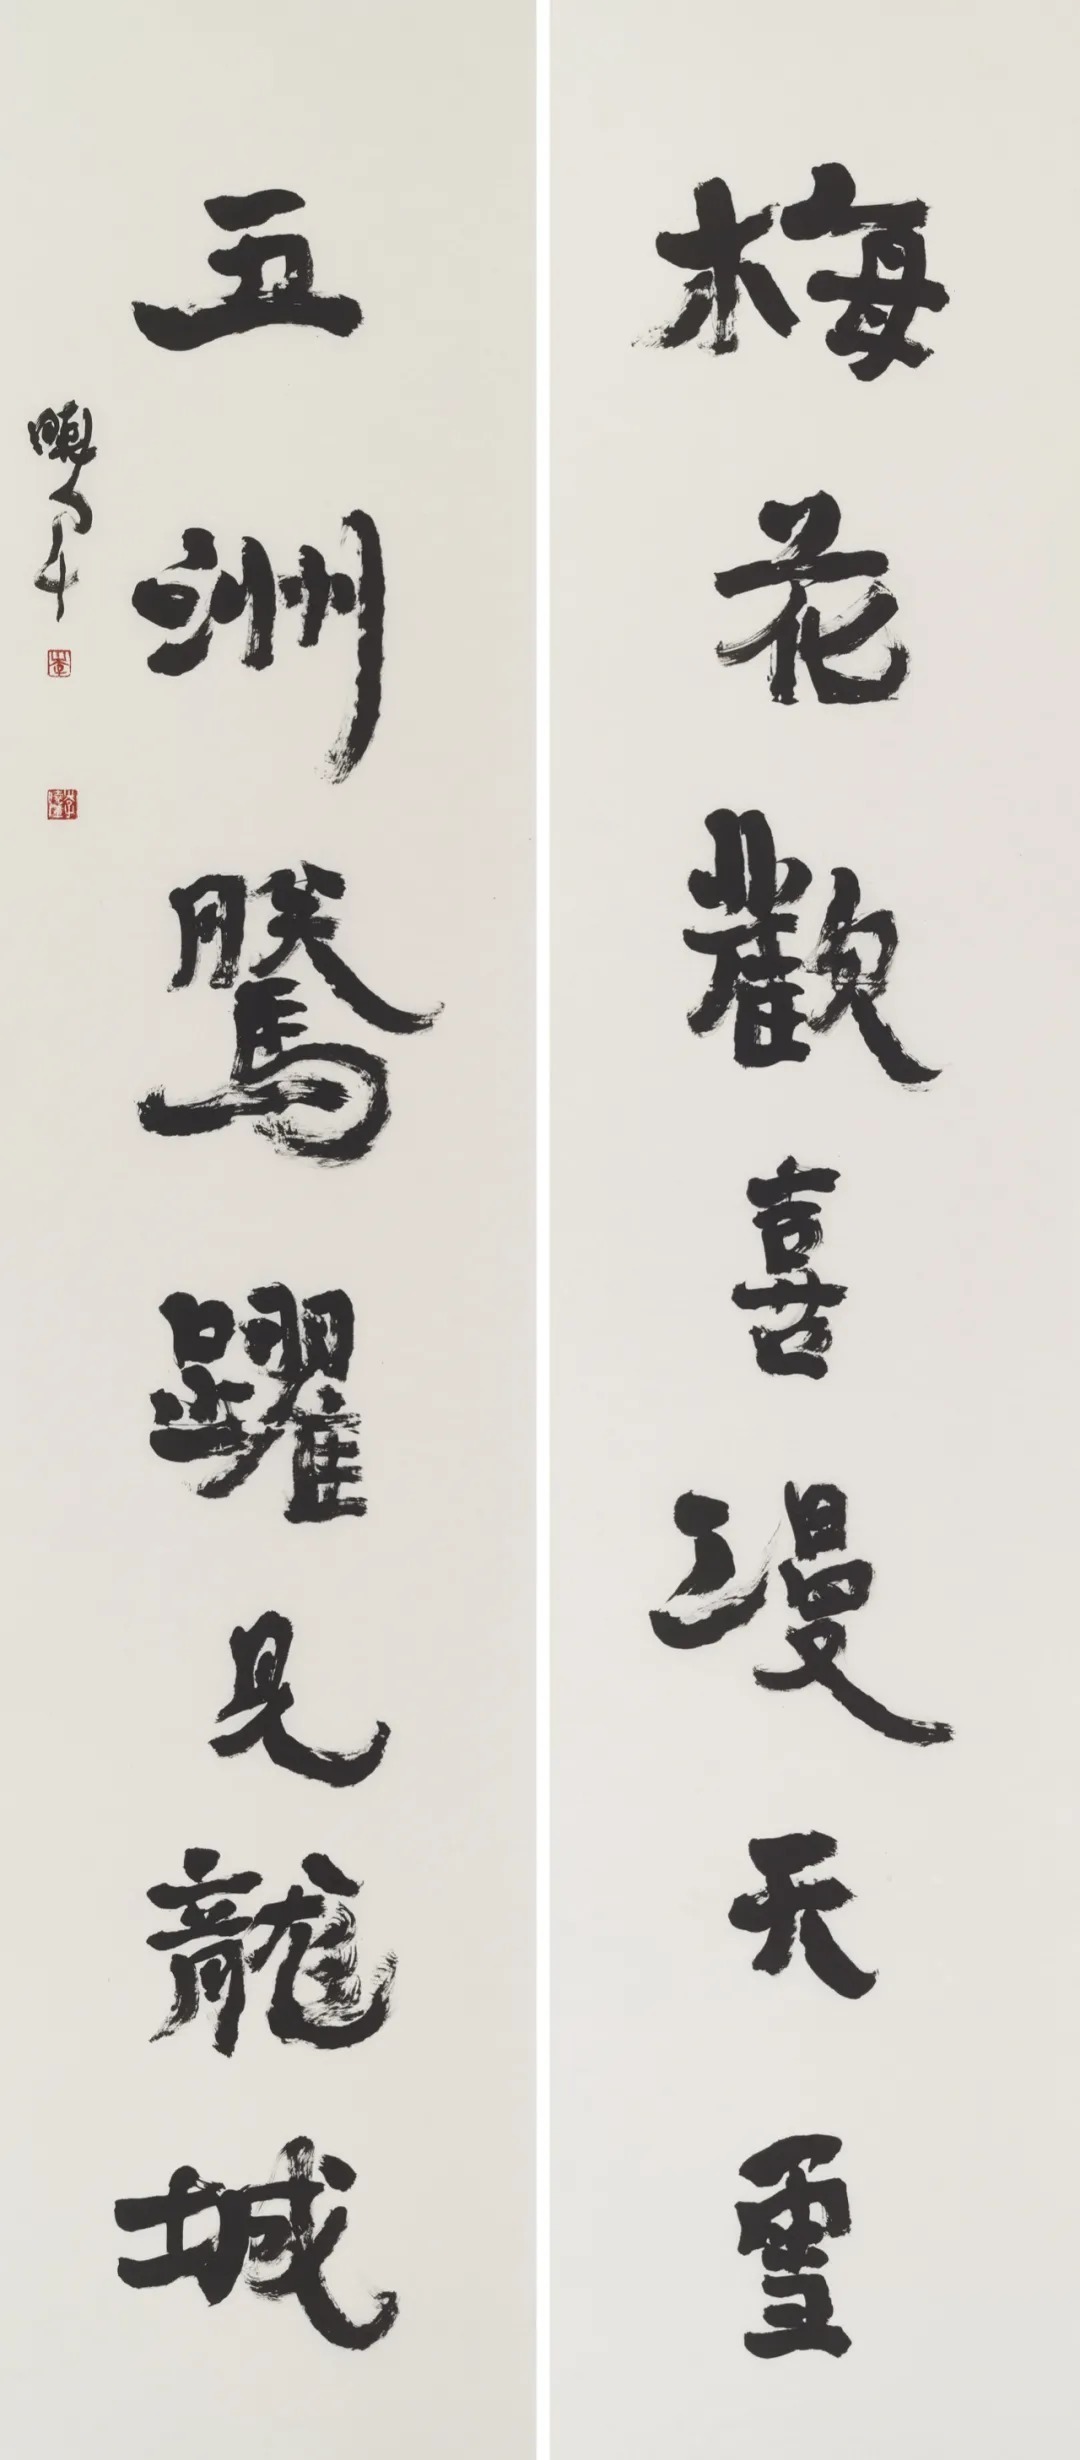 梅花歡喜漫天雪
五洲騰躍見龍城